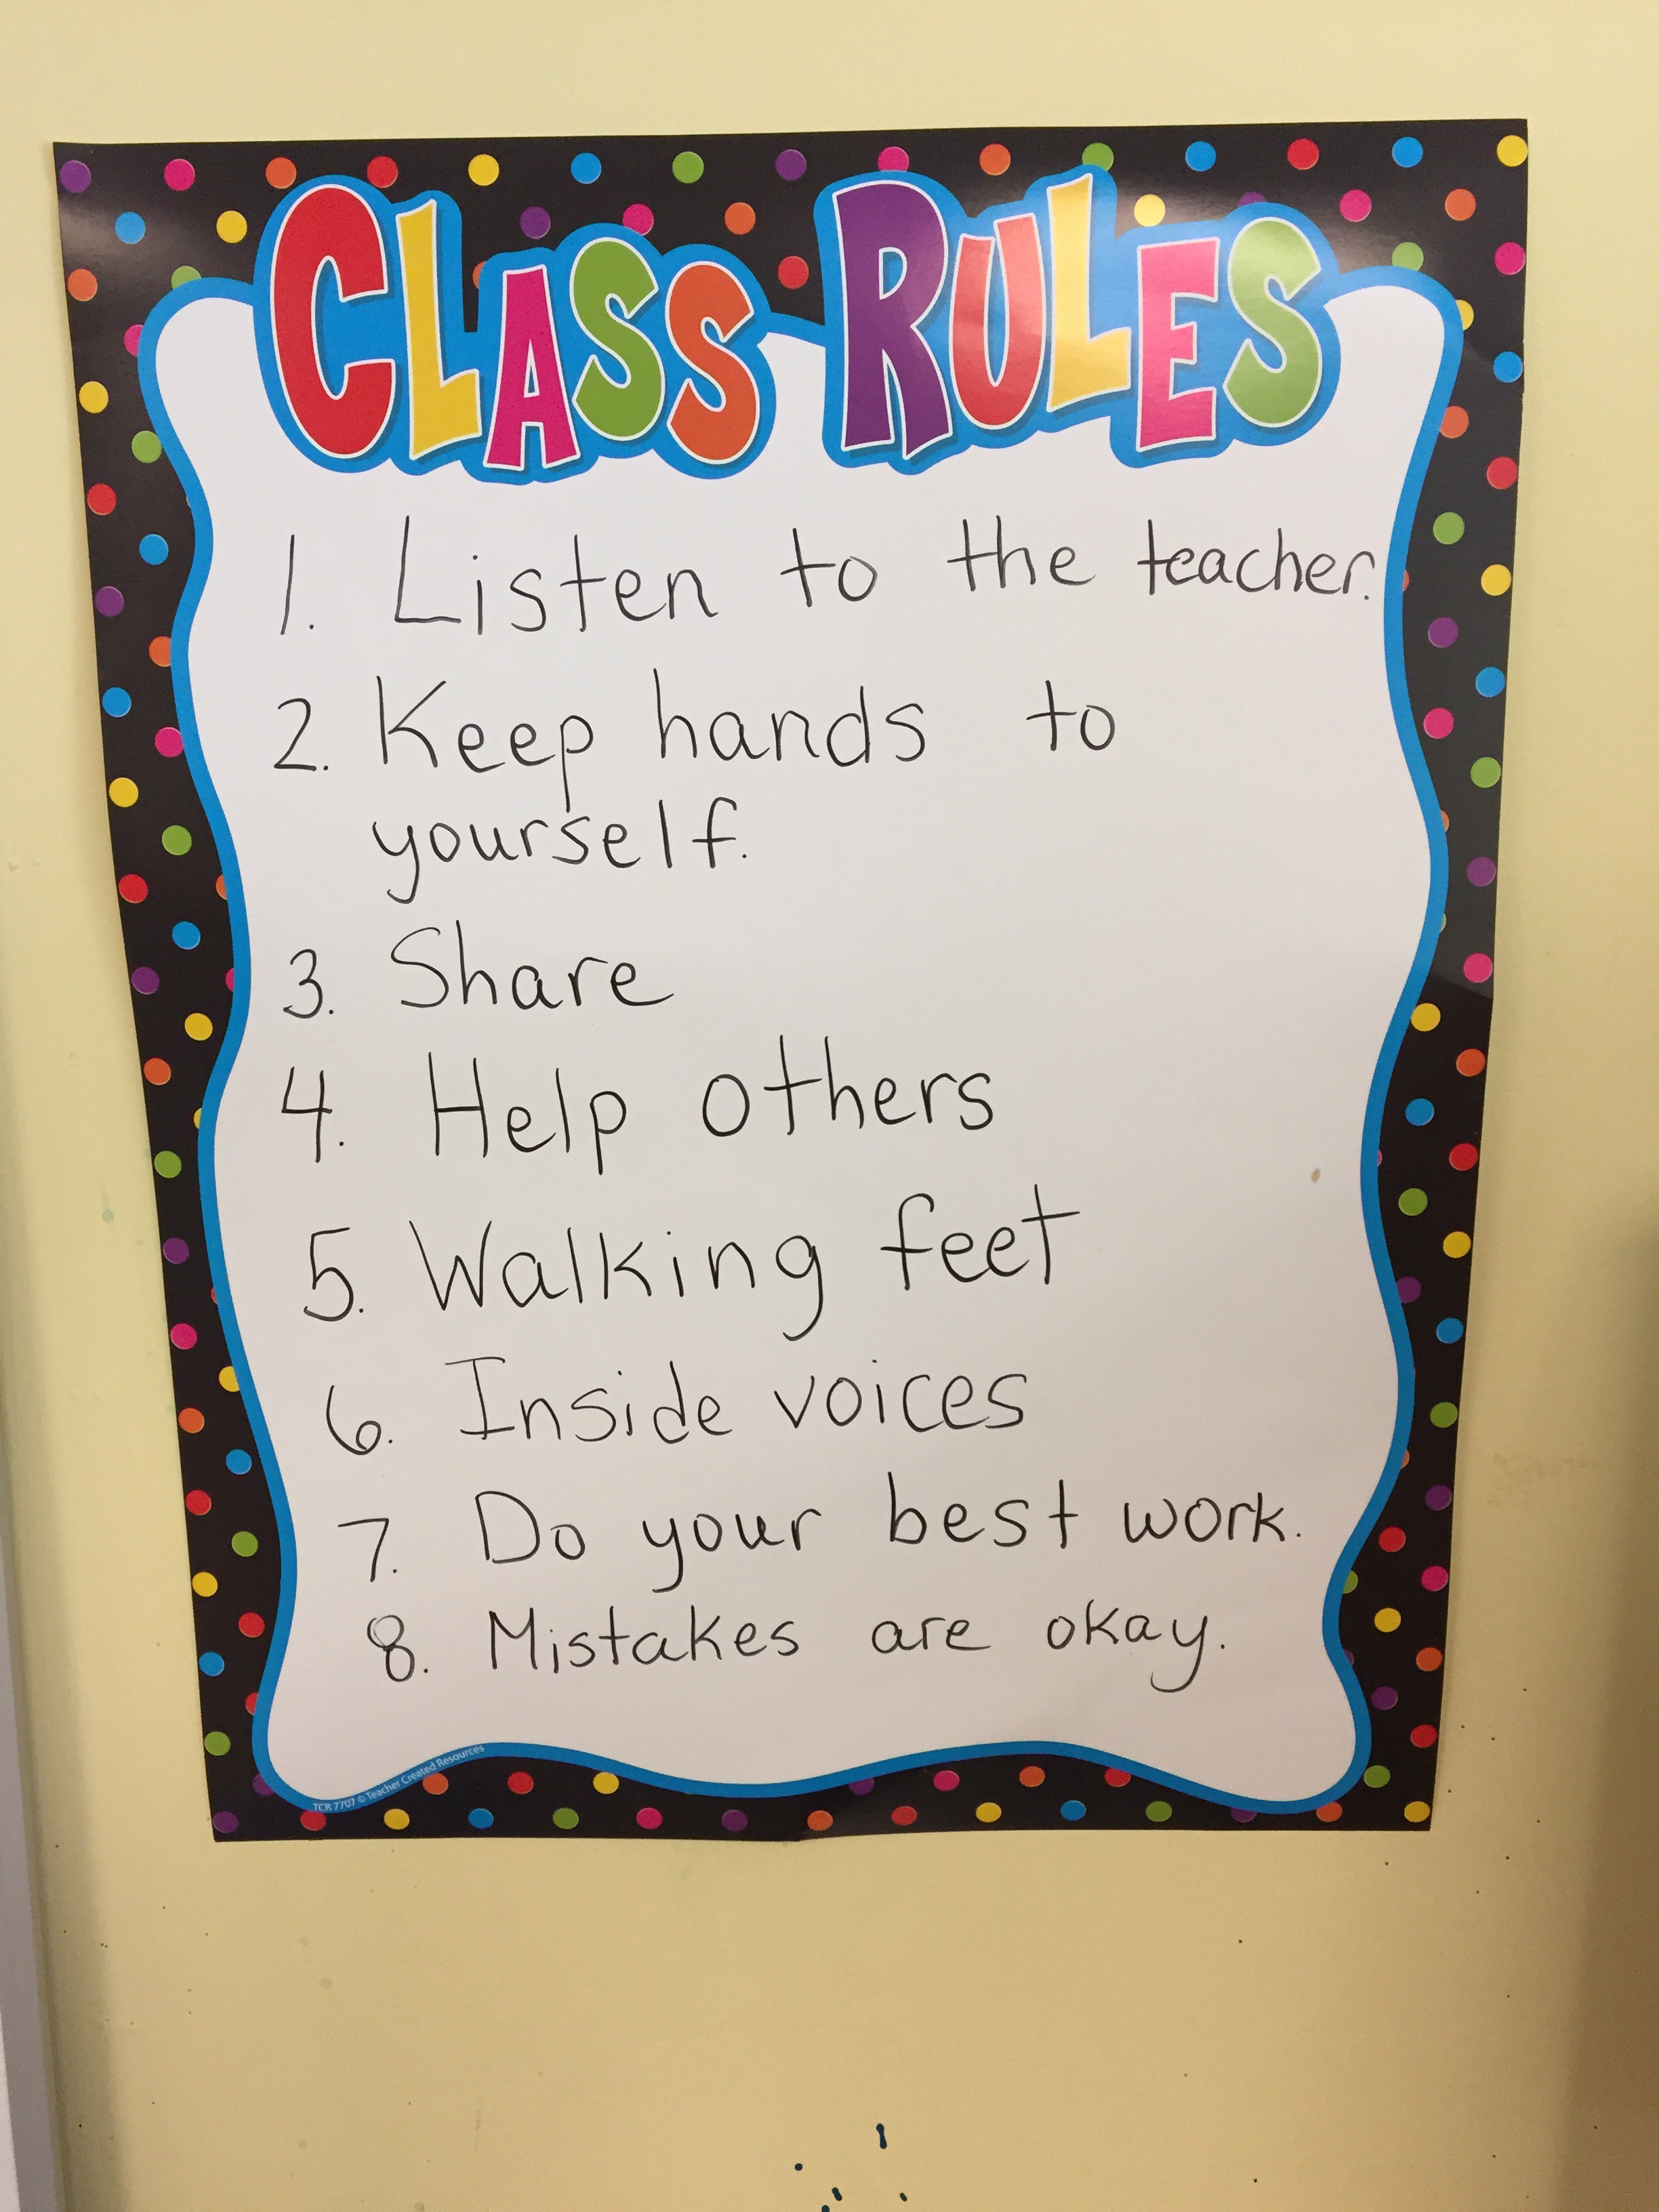 CLASS RULES
1. Listen to the teacher.
2. Keep hands to
yourself.
3. Share
4. Help others
5. Walking feet
6. Inside voices
7. Do your best work.
8. Mistakes are okay.
TCR 7707 © Teacher Created Resources